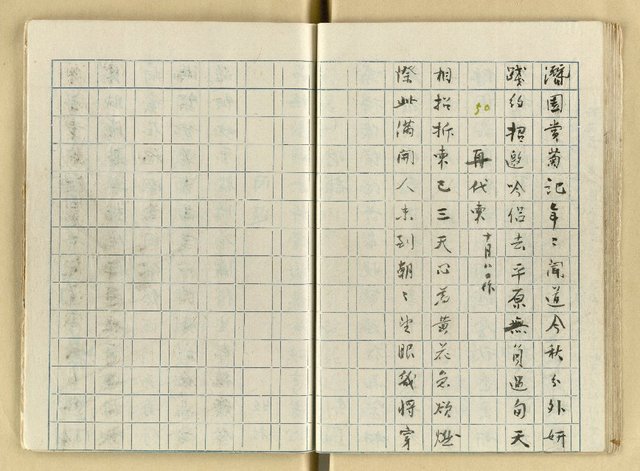 潛園賞菊記年〻聞道今秋分外妍
踐約招邀吟侶去平原無負過旬天
50
再代柬 十月八日作
相招折柬已三天心為黃花急欲燃
際此滿開人未到朝〻望眼幾將穿